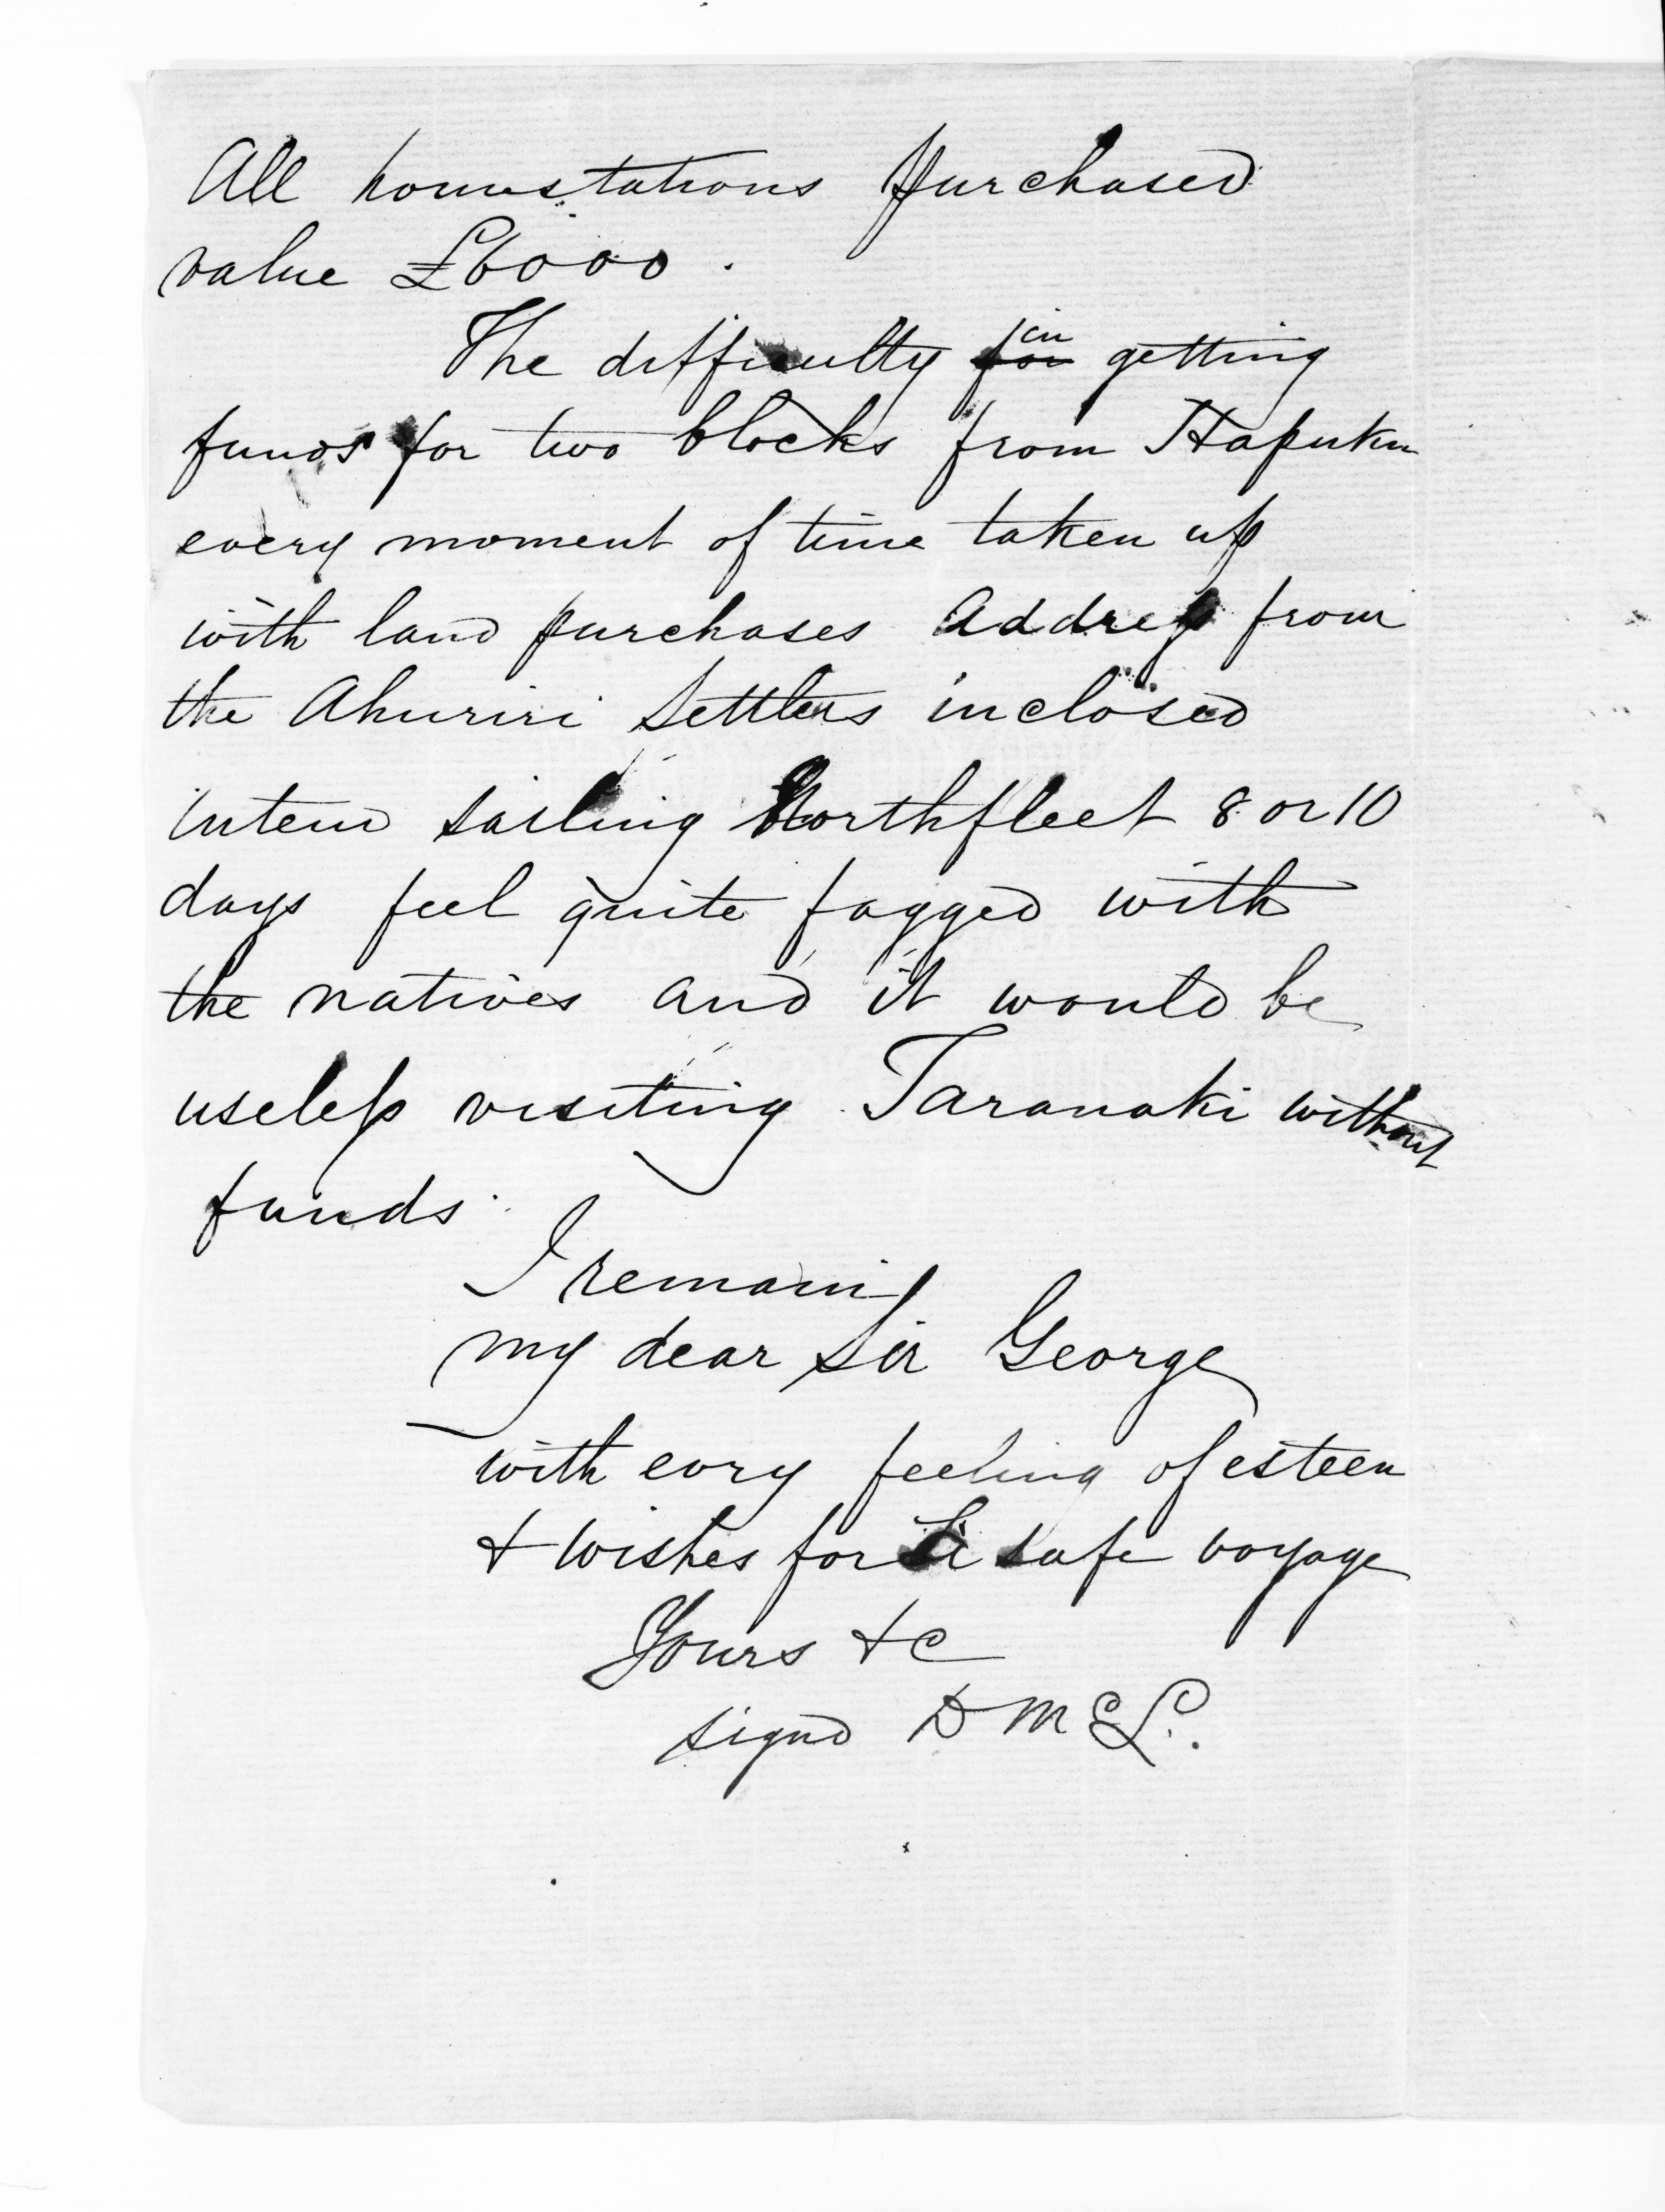 All homestations purchased
value £6000.
The difficulty for in getting
funds for two blocks from Hapuku
every moment of time taken up
with land purchases Address from
the Ahuriri Settlers inclosed
intend sailing Northfleet 8 or 10
days feel quite fagged with
the natives and it would be
useless visiting Taranaki without
funds.
I remain
my dear Sir George
with evry feeling of esteem
& wishes for a safe voyage
Yours &c
signd D McL.